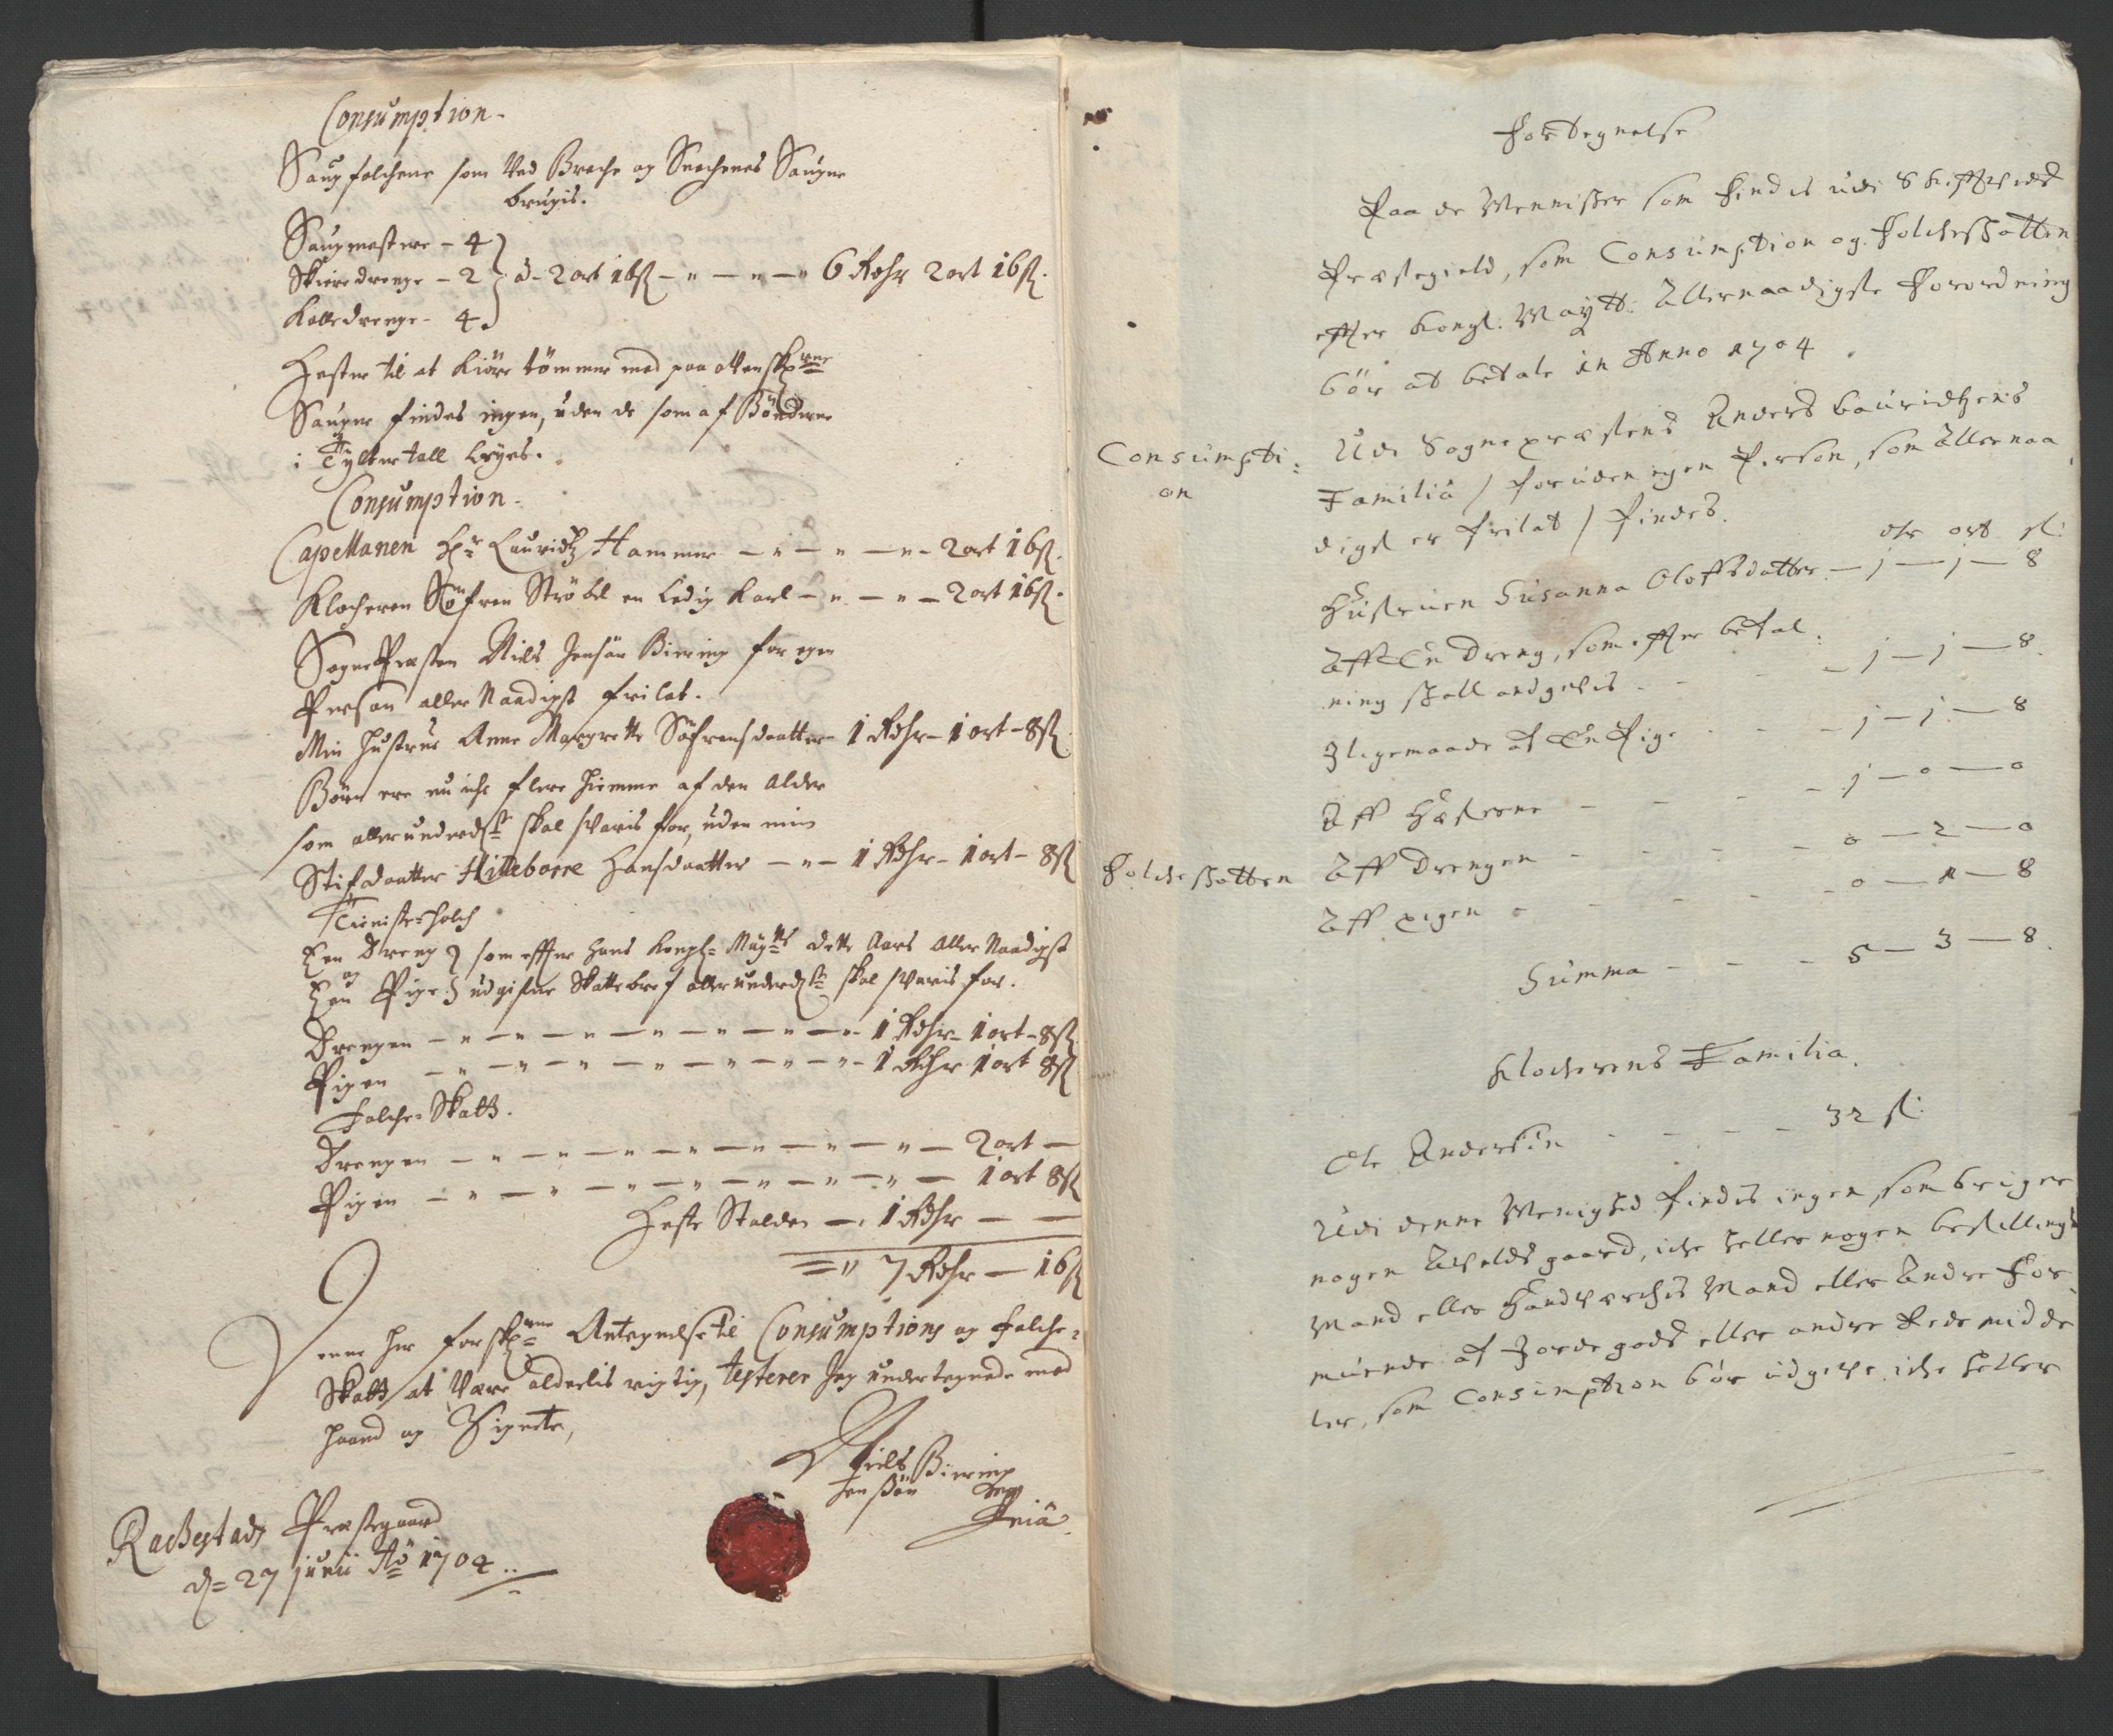 Consumption.
Saugfolchene som Ved Breche og Snechenes Saugne
brugis.
Saugmestere - 4
Skieredrenge - 2 } à - 2 ort 16ß - " - " - " 6 Rdhr 2 ort 16ß.
Kalledrenge - 4.
Hester til at Kiöre tömmer med paa ovenskrne
Saugne findes ingen, uden de som af Bönderne
i Tylter tall leyes.
Consumption.
Capellanen Hr Lauridtz Hammer - " - " - " - 2 ort 16ß.
Klocheren Söfren Ströbel en Ledig Karl - " - " - 2 ort 16ß.
SognePræsten Niels Jensön Biering for egen
Person aller Naadigst frilat.
Min Hustrue Anne Margrette Söfrensdaatter - 1 Rdhr - 1 ort - 8ß
Börn ere nu iche flere hiemme af den Alder
som allerunderdste skal svaris for, uden min
Stifdaatter Hilleborre Hansdaatter - " - 1 Rdhr - 1 ort - 8ß
Tieniste-Folch
Een Dreng } som effter Hans Kongl= Mayts dette Aars Aller Naadigst
og
Een Pige } udgifne Skattebref allerunderdste skal svaris for.
Drengen - " - " - " - " - " - " - 1 Rdhr - 1 ort - 8ß
Pigen - " - " - " - " - " - " - 1 Rdhr 1 ort 8ß
Folche-Skatt.
Drengen - " - " - " - " - " - " - 2 ort -
Pigen - " - " - " - " - " - " - 1 ort 8ß
Heste Stalder - . 1 Rdhr - -
=" 7 Rdhr - 16ß
Denne her forskrne Antegnelse til Consumptions og Folche-
Skatt at Være aldeelis rigtig, testerer Jeg undertegnede med
haand og Signete,
Niels Biering
Jensön
Rachestads Præstegaard
d= 27 junii Ao 1704
Fortegnelse
Paa de Mennisker som findes udi Skiptvedt
Præstegield, som Consumption og Folcheskatten
effter Kongl. Maytt: Allernaadigste Forordning
bör at betale in Anno 1704.
Consumpti=
on
Udi Sognepræstens Anders Lauridtzens
Familiâ / foruden egen Person, som Allernaa
digst er frilat / findes.
dlr ort ß:
Hustruen Susanna Olofsdatter - 1 - 1 - 8
Aff En Dreng, som effter betal
ning skall andgifvis - - - 1 - 1 - 8.
Iligemaade af En Pige - - - 1 - 1 - 8
Aff Hæsterne - - - - 1 - 0 - 0
Folcheskatten
Aff Drengen - - - - 0 - 2 - 0
Aff pigen - - - - 0 - 1 - 8
Summa - - - 5 - 3 - 8.
Klocherens Familia.
Ole Andersön - - - - 32 ß:
Udi denne Menighed findis ingen, som bruger
nogen Afvelds gaard, iche heller nogen bestillings
Mand eller Handværchis Mand eller Andre For
muende af Jordegods eller andre Rede midde
ler, som Consumption bör udgifve, iche heller